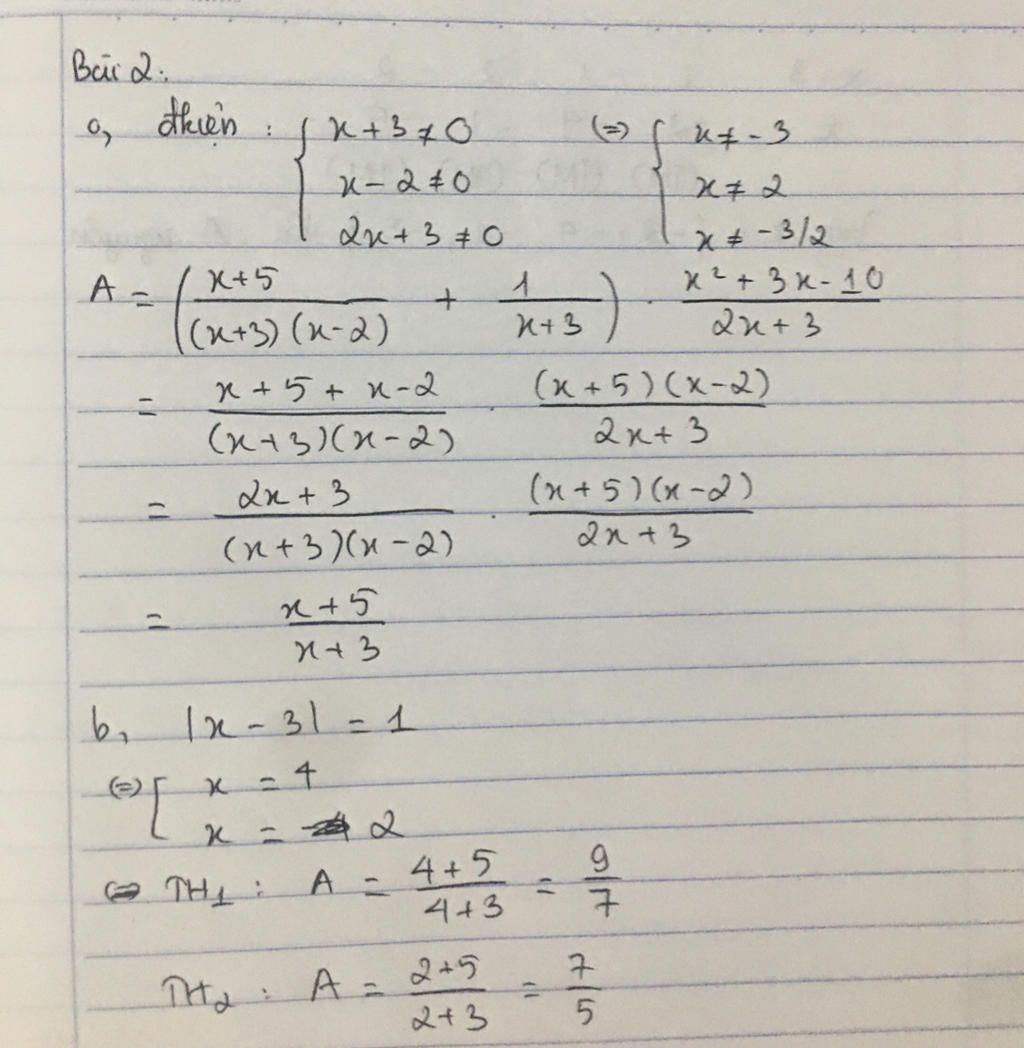 Bài 2:
a, đkiện : { x + 3 ≠ 0 (=) { x ≠ -3
x - 2 ≠ 0 x ≠ 2
2x + 3 ≠ 0 x ≠ -3/2
A = ( \frac{x+5}{(x+3)(x-2)} + \frac{1}{x+3} ) . \frac{x² + 3x - 10}{2x + 3}
= \frac{x + 5 + x - 2}{(x+3)(x-2)} . \frac{(x+5)(x-2)}{2x+3}
= \frac{2x + 3}{(x+3)(x-2)} . \frac{(x+5)(x-2)}{2x+3}
= \frac{x+5}{x+3}
b, |x - 3| = 1
(=) [ x = 4
x = 2
TH1 : A = \frac{4+5}{4+3} = \frac{9}{7}
TH2 : A = \frac{2+5}{2+3} = \frac{7}{5}